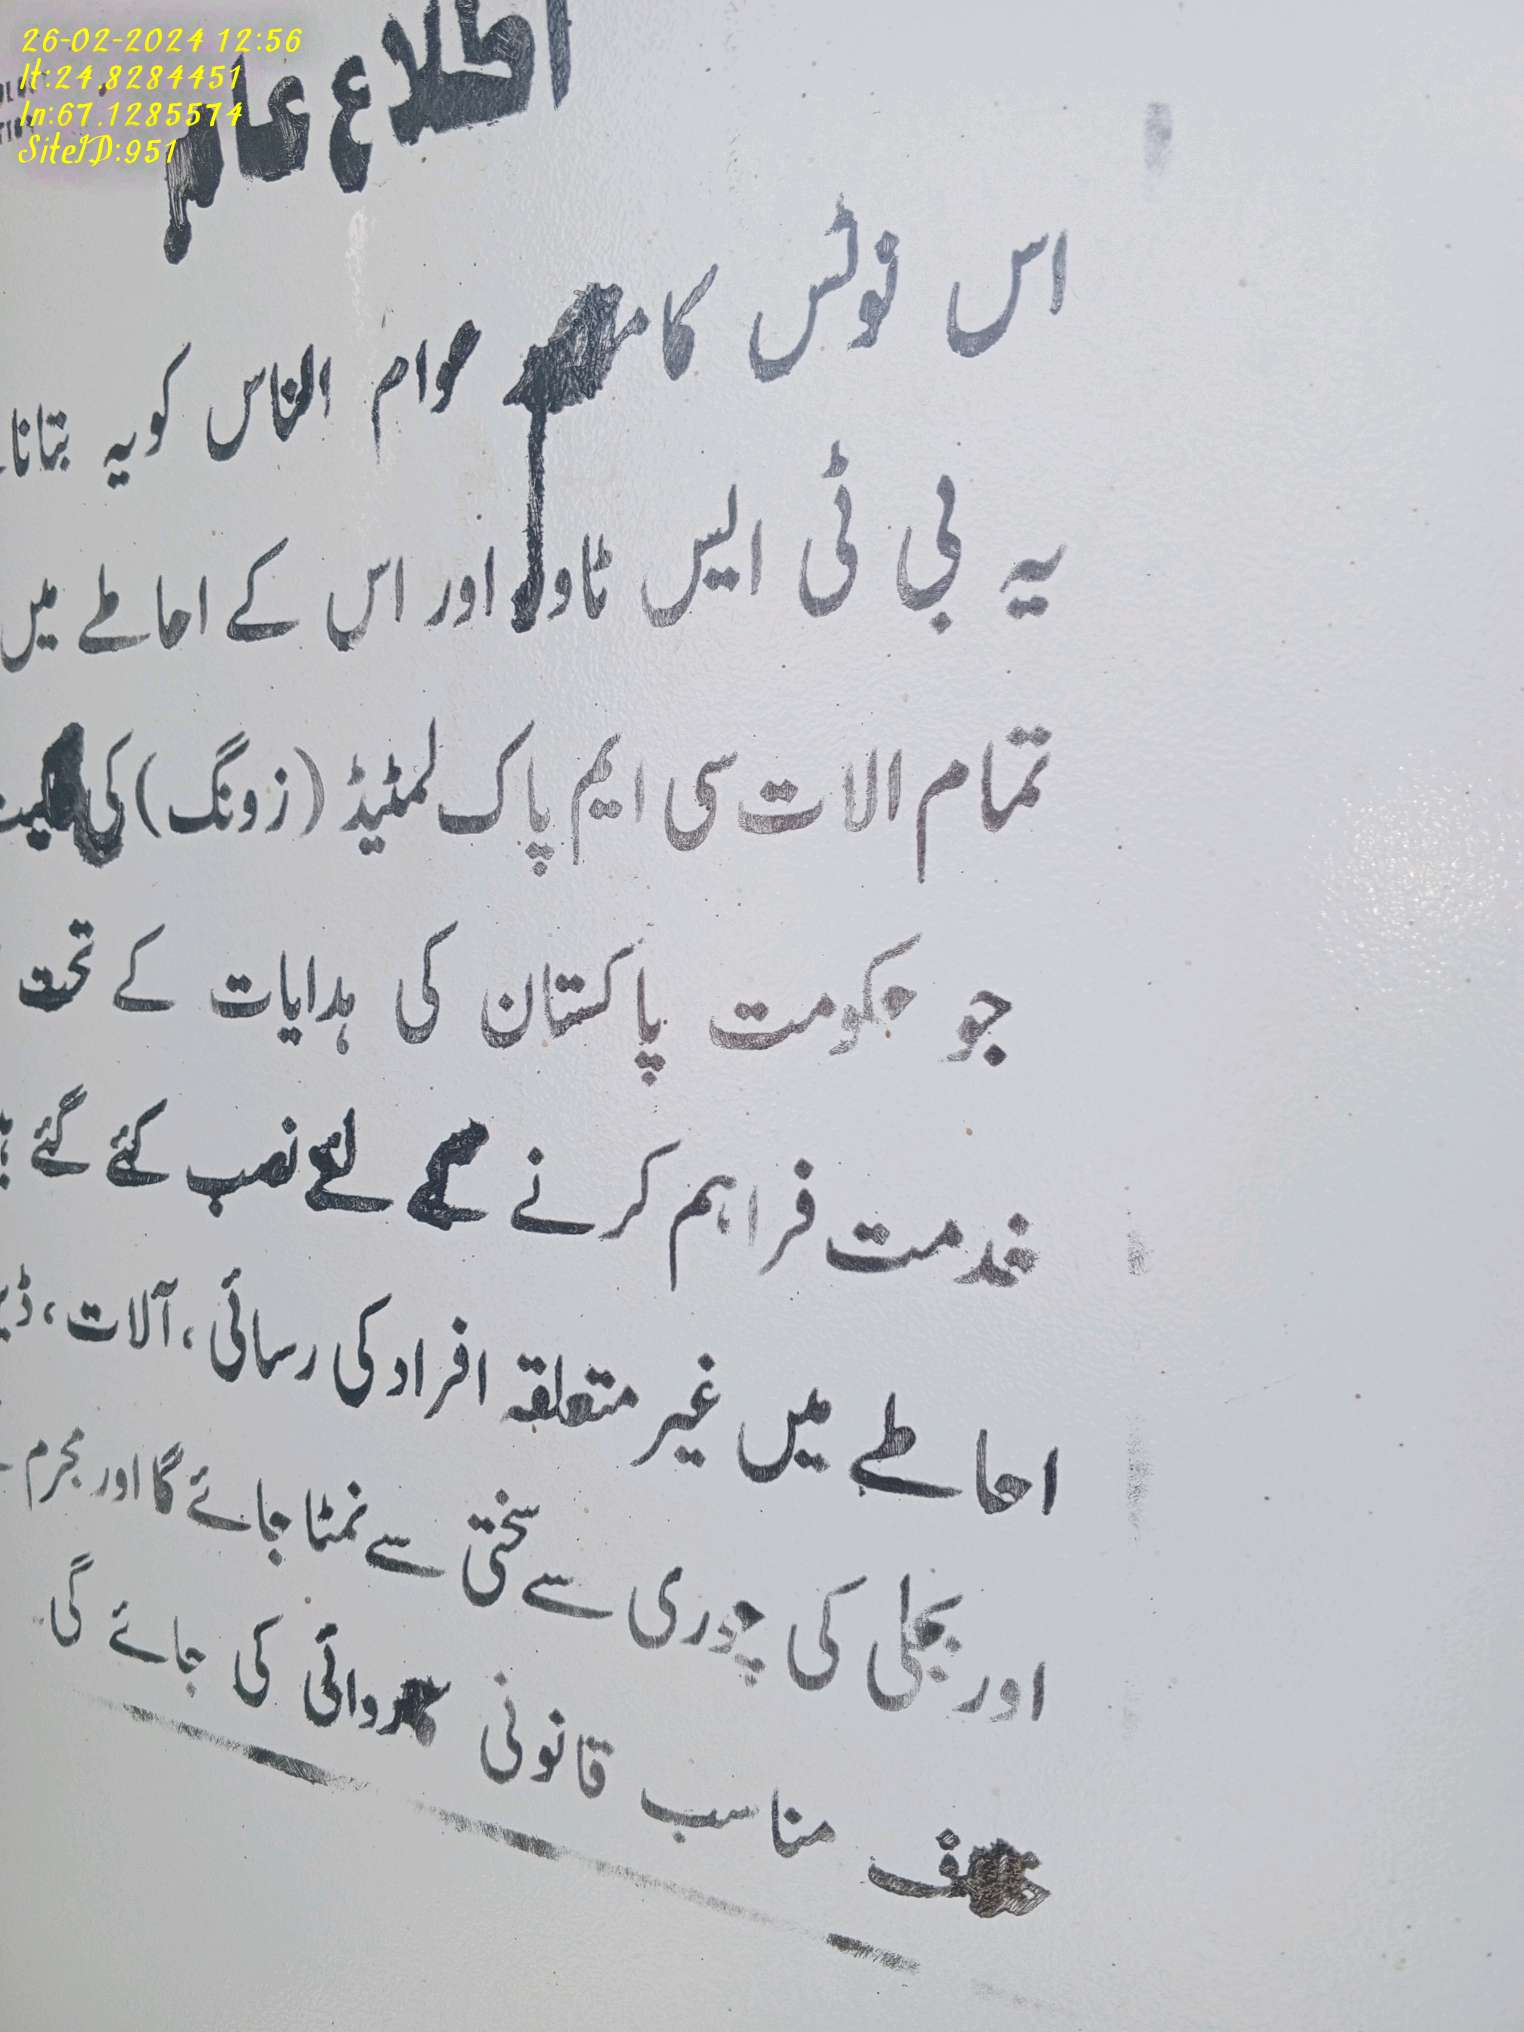 26-02-2024 12:56
lt:24.8284451
ln:67.1285574
SiteID:951
اطلاع عام
اس نوٹس کا عوام الناس کو یہ بتانا
یہ بی ٹی ایس ٹاور اور اس کے احاطے میں
تمام الات سی ایم پاک لمٹیڈ (زونگ) کی
جو حکومت پاکستان کی ہدایات کے تحت
خدمت فراہم کرنے کے لئے نصب کئے گئے
احاطے میں غیر متعلقہ افراد کی رسائی، آلات،
اور بجلی کی چوری سے سختی سے نمٹا جائے گا اور مجرم
مناسب قانونی کی جائے گی